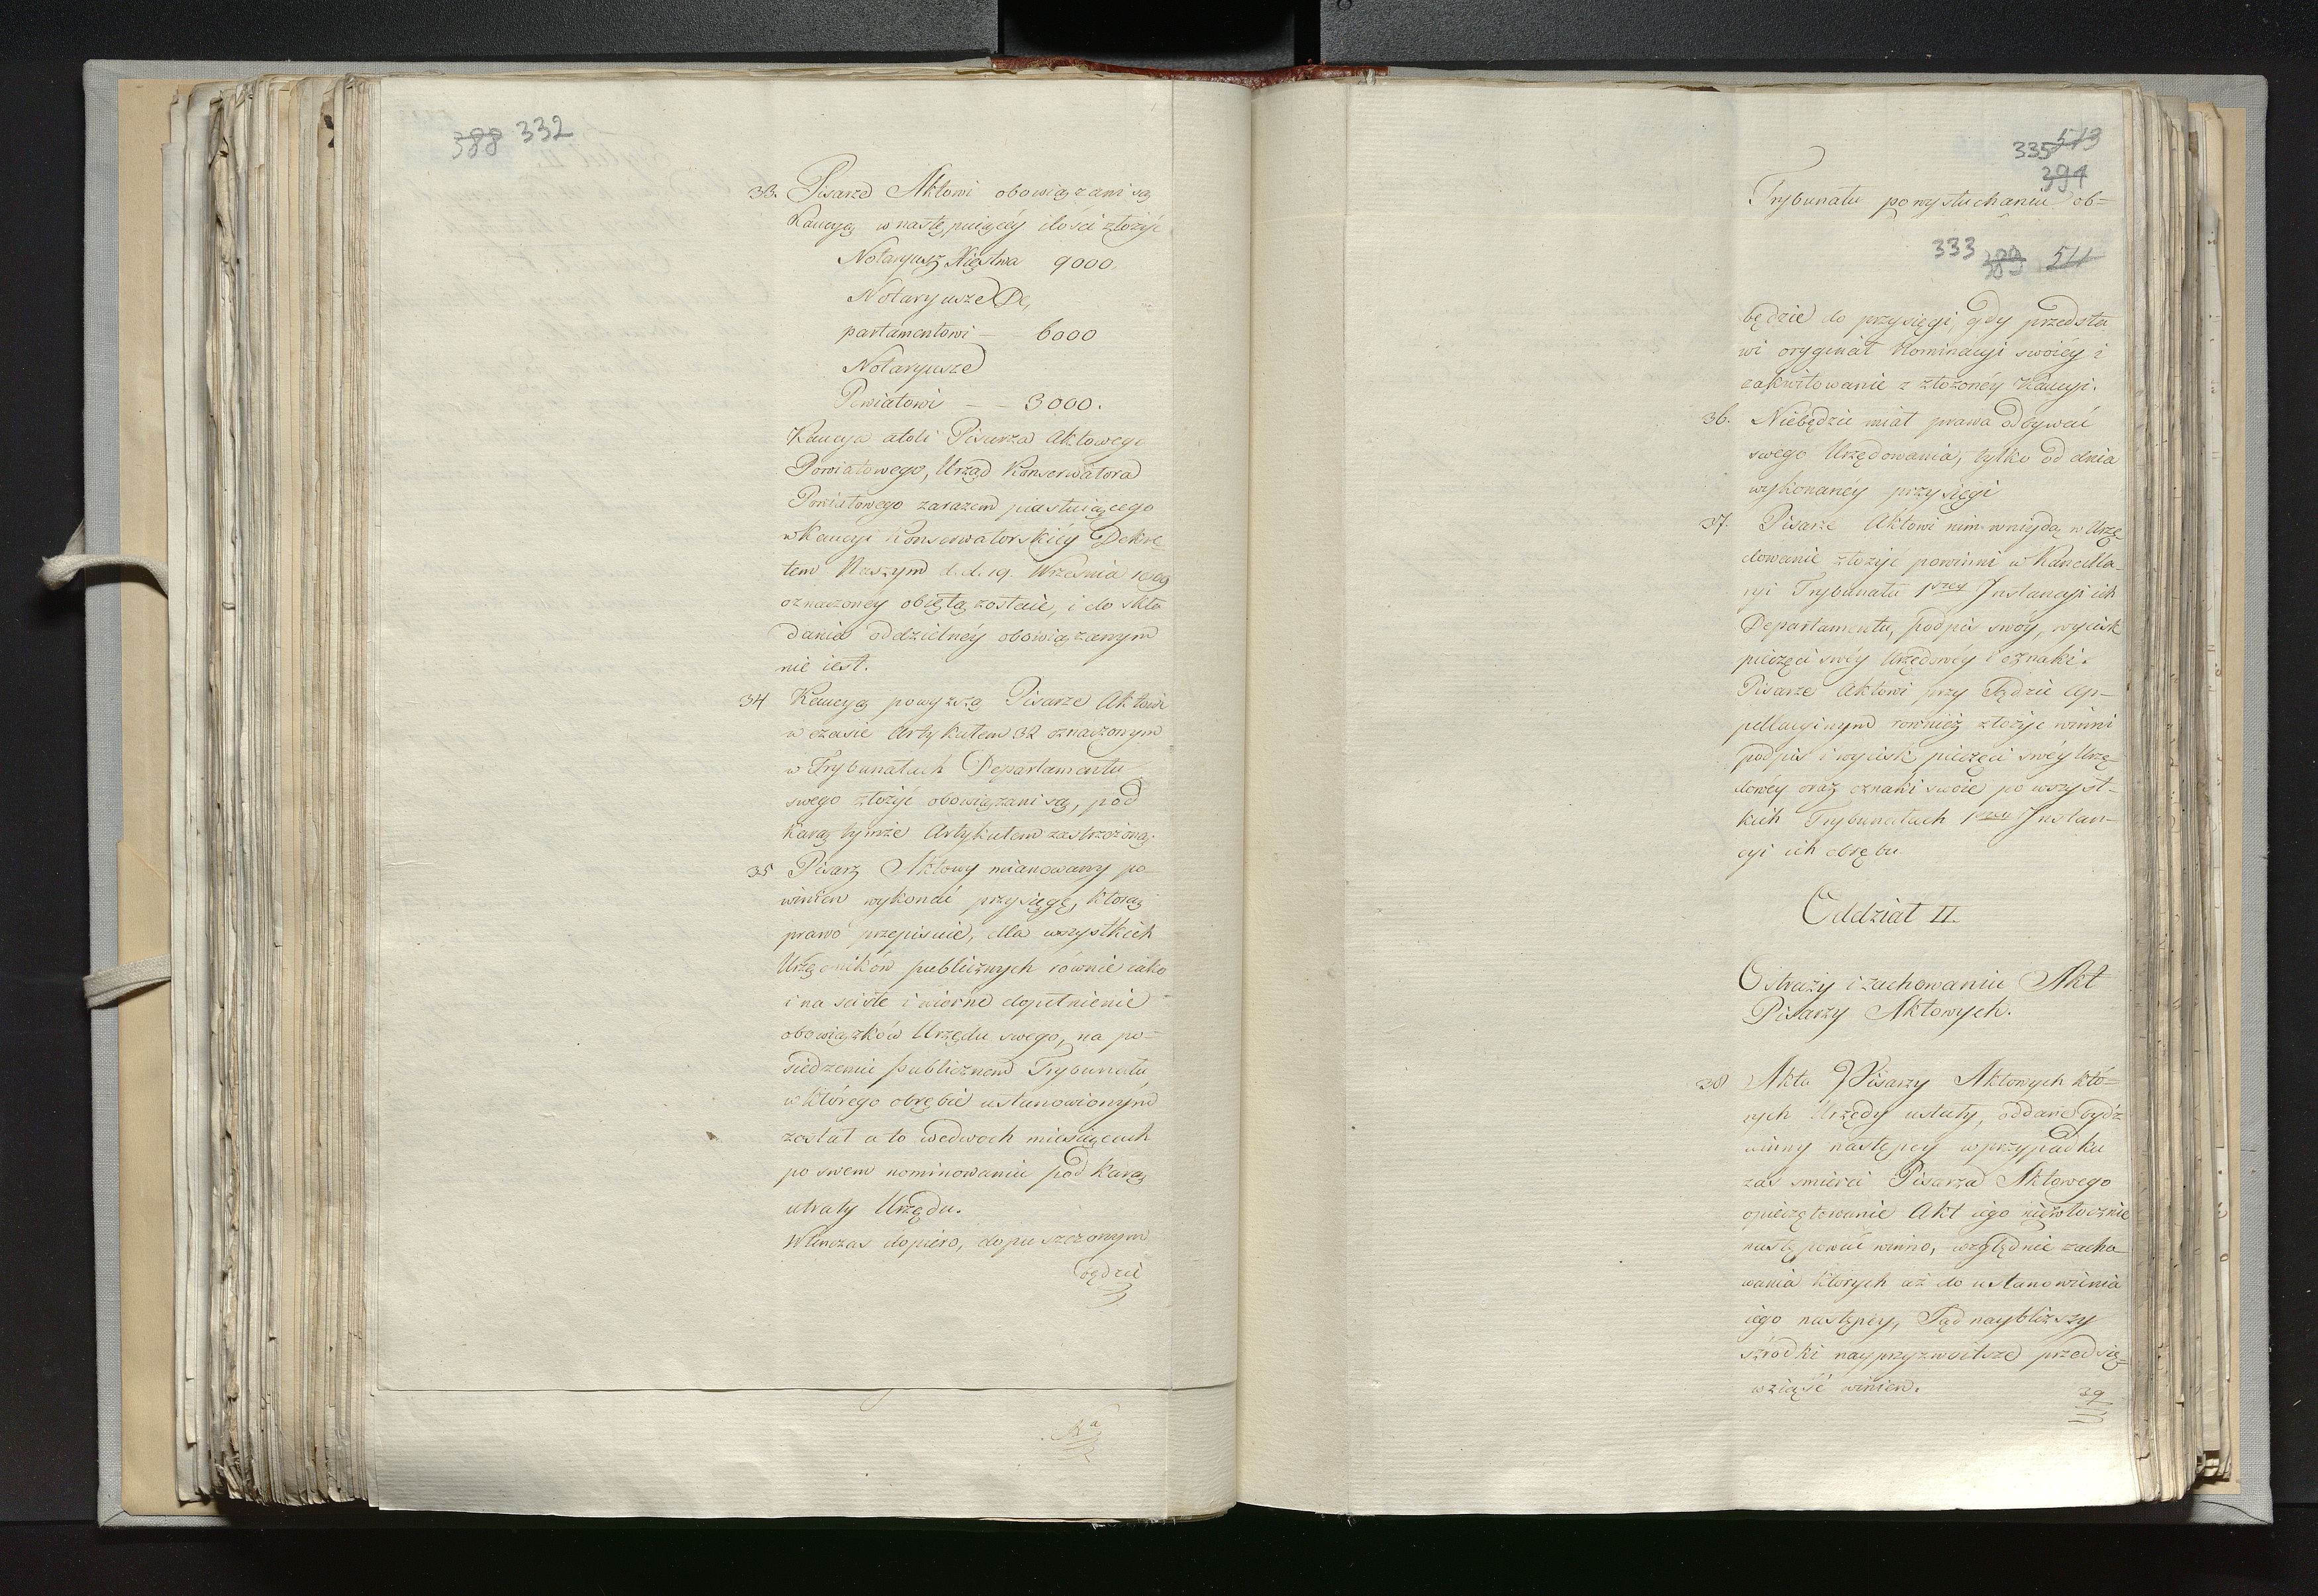 388 332
33. Pisarze Aktowi obowiązani są
Kaucyą w następuiącéy ilości złożyć
Notaryusz Xięstwa 9000.
Notaryusze De,
partamentowi — 6000
Notaryusze
Powiatowi — — 3000.
Kaucya atoli Pisarza Aktowego
Powiatowego, Urząd Konserwatora
Powiatowego zarazem piastuiącego
w Kaucyi Konserwatorskiéy Dekre-
tem Naszym d. d. 19. Września 1809
oznaczonéy obiętą zostaie, i do skła
dania oddzielnéy obowiązanym
nie iest.
34 Kaucyą powyższą Pisarze Aktowi
w czasie Artykułem 32 oznaczonym
w Trybunałach Departamentu
swego złożyć obowiązani są, pod
karą tymże Artykułem zastrzeżoną.
35 Pisarz Aktowy mianowany po-
winien wykonać przysięgę, którą
prawo przepisuie, dla wszystkich
Urzędników publicznych równie iako
i na ścisłe i wierne dopełnienie
obowiązków Urzędu swego, na po-
siedzeniu publicznem Trybunału
w którego obrębie ustanowionym
został a to we dwoch miesiącach
po swem nominowaniu pod karą
utraty Urzędu.
Wtenczas dopiero, dopuszczonym
będzie
Na
335 513
394
Trybunału po wysłuchaniu ob-
333 389 511
będzie do przysięgi, gdy przedsta
wi oryginał Nominacyi swoiéy i
zakwitowanie z złożonéy Kaucyi.
36. Niebędzie miał prawa odbywać
swego Urzędowania, tylko od dnia
wykonanéy przysięgi
37. Pisarze Aktowi nim wniydą w Urzę-
dowanie złożyć powinni w Kancella-
ryi Trybunału 1szey Instancyi ich
Departamentu, podpis swóy, wycisk
pieczęci swéy Urzędowéy i oznaki.
Pisarze Aktowi, przy Sądzie Ap-
pellacyinym rownież złożyć winni
podpis i wycisk pieczęci swéy Urzę-
dowéy oraz oznaki swoie po wszyst-
kich Trybunałach 1szey Instan-
cyi ich obrębu.
Oddział II.
O straży i zachowaniu Akt
Pisarzy Aktowych.
38 Akta Pisarzy Aktowych któ-
rych Urzędy ustały, oddane bydź
winny następcy w przypadku
zaś śmierci Pisarza Aktowego
opieczętowanie Akt iego niezwłocznie
następować winno, względnie zacho-
wania których aż do ustanowienia
iego następcy, Sąd naybliższy
szrodki nayprzyzwoitsze przedsię-
wziąść winien.
39